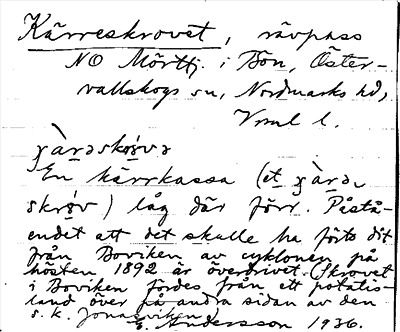 Kärreskrovet, rävpass
NO Mörttj. i Bön, Öster-
vallskogs sn, Nordmarks hd,
Vrml l.
En kärrkassa (et
låg där förr. Påstå-
endet att det skulle ha förts dit
från Boviken av cyklonen på
hösten 1892 är överdrivet. Skrovet
i Boviken fördes från ett potatis-
land över på andra sidan av den
s.k. Jonasviken.
E. Andersson 1936.